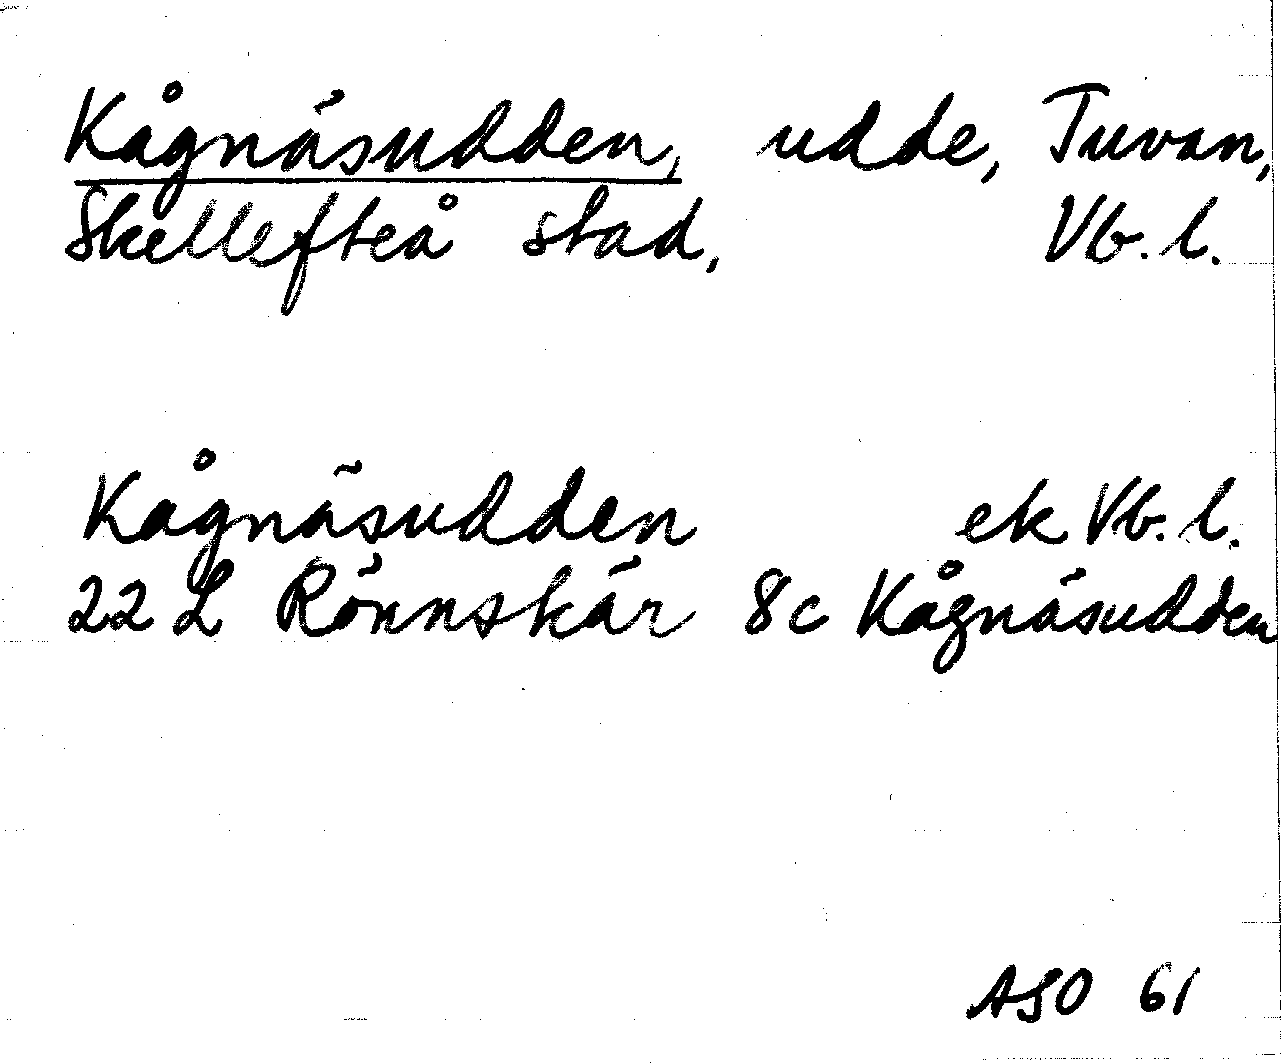 Kågnäsudden, udde, Tuvan,
Skellefteå stad, Vb. l.
Kågnäsudden ek Vb. l.
22 L Rönnskär 8c Kågnäsudden
ASO 61